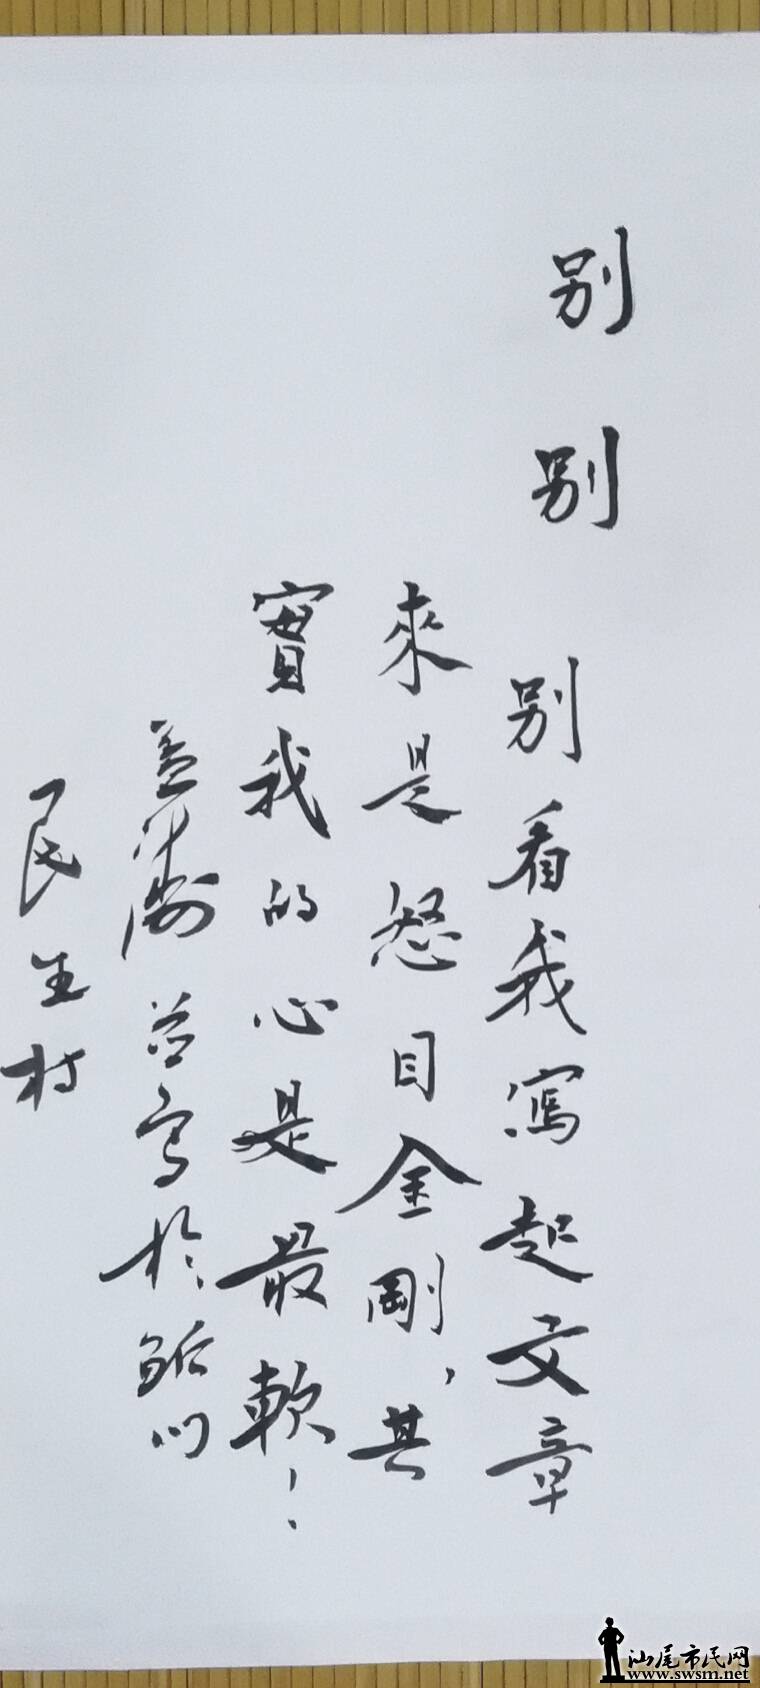 别别别看我寫起文章
來是怒目金剛，其
實我的心是最軟！
蓋濤并寫於鮜门
民生村
汕尾市民网
www.swsm.net